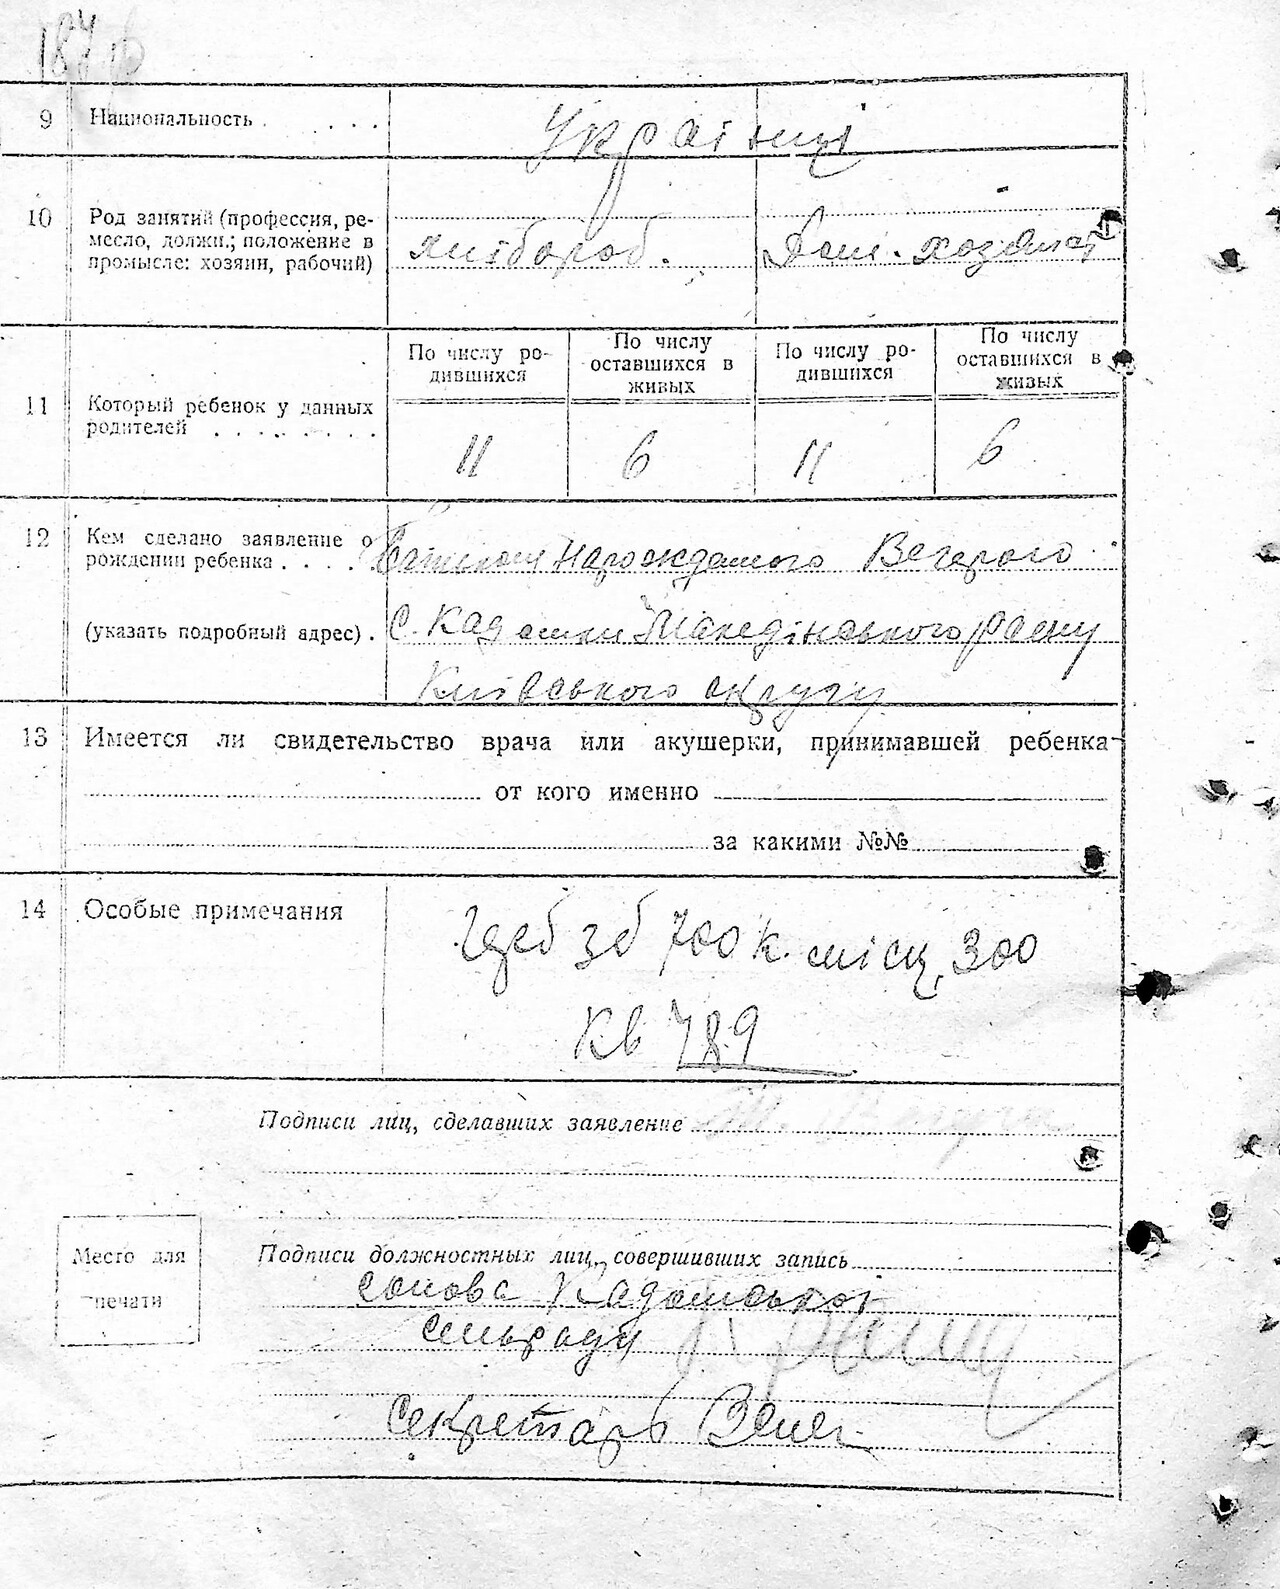 187
9 Национальность . . . . . Українці
10 Род занятий (профессия, ре-
месло, должн.; положение в
промысле: хозяин, рабочий)
хлібороб. Дом. хозяйка
По числу ро-
дившихся
По числу
оставшихся в
живых
По числу ро-
дившихся
По числу
оставшихся в
живых
11 Который ребенок у данных
родителей . . . . . . . .
11 6 11 6
12 Кем сделано заявление о
рождении ребенка . . . . Батьком нарожденого
(указать подробный адрес) . С. Кадомки району
Київського округу
13 Имеется ли свидетельство врача или акушерки, принимавшей ребенка
от кого именно
за какими №№
14 Особые примечания
зб 700 к. місц, 300
Кв 789
Подписи лиц, сделавших заявление
Место для
печати
Подписи должностных лиц, совершивших запись
Голова Кадомської
сільради
Секретарь